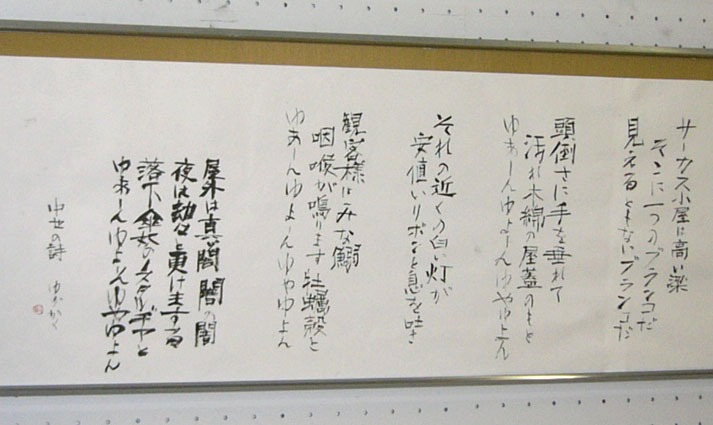 サーカス小屋は高い梁
そこに一つのブランコだ
見えるともないブランコだ
頭倒さに手を垂れて
汚れ木綿の屋蓋のもと
ゆあーんゆよーんゆやゆよん
それの近くの白い灯が
安値いリボンと息を吐き
観客様はみな鰯
咽喉が鳴ります牡蠣殻と
ゆあーんゆよーんゆやゆよん
屋外は真ッ闇 闇の闇
夜は劫々と更けまする
落下傘奴のノスタルヂアと
ゆあーんゆよーんゆやゆよん
中也の詩 ゆかかく